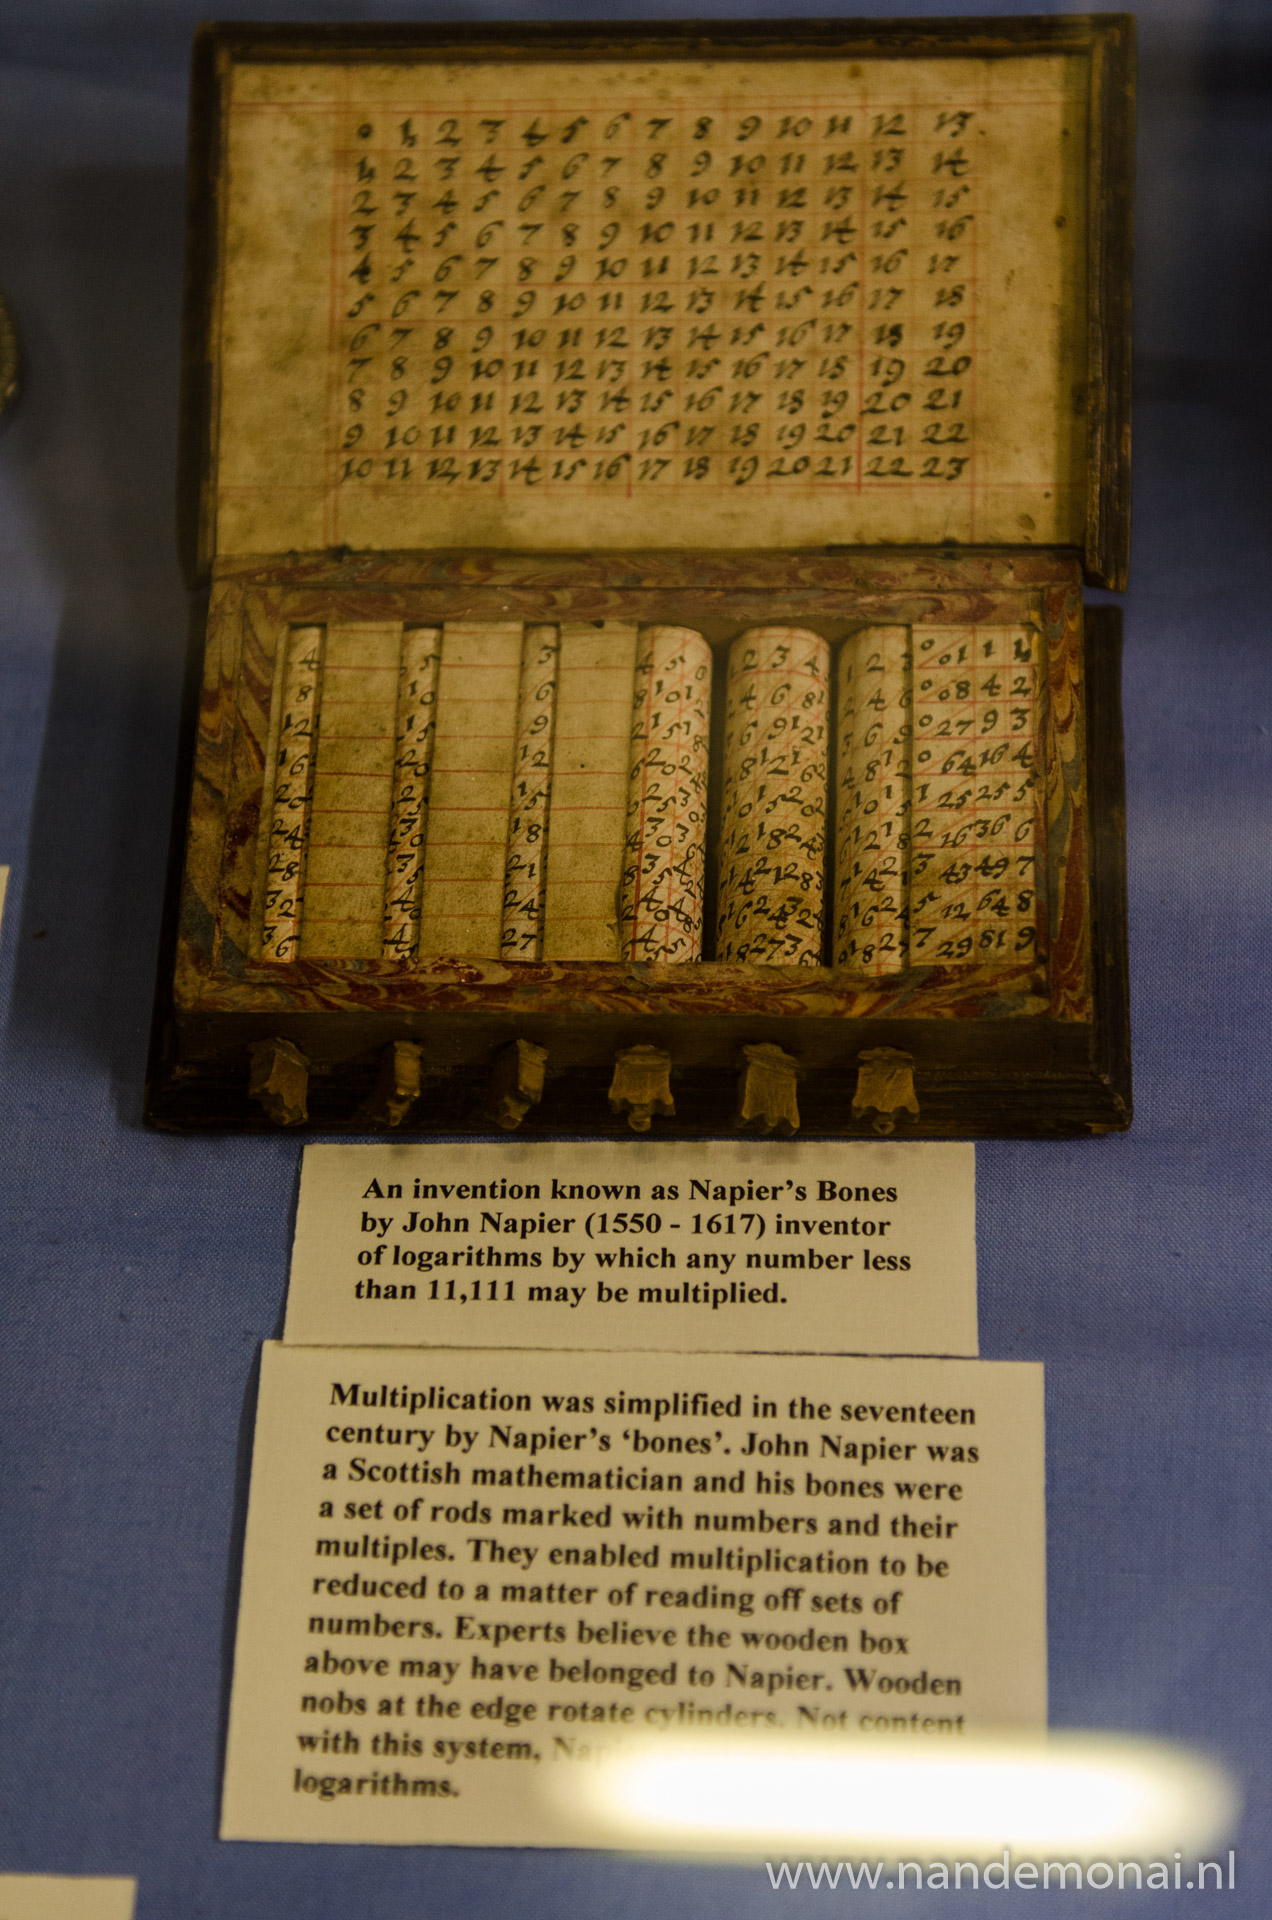 0 1 2 3 4 5 6 7 8 9 10 11 12 13
1 2 3 4 5 6 7 8 9 10 11 12 13 14
2 3 4 5 6 7 8 9 10 11 12 13 14 15
3 4 5 6 7 8 9 10 11 12 13 14 15 16
4 5 6 7 8 9 10 11 12 13 14 15 16 17
5 6 7 8 9 10 11 12 13 14 15 16 17 18
6 7 8 9 10 11 12 13 14 15 16 17 18 19
7 8 9 10 11 12 13 14 15 16 17 18 19 20
8 9 10 11 12 13 14 15 16 17 18 19 20 21
9 10 11 12 13 14 15 16 17 18 19 20 21 22
10 11 12 13 14 15 16 17 18 19 20 21 22 23
4 5 3 4 5 0 2 3 4 1 2 3 0 01 1 1
8 10 6 0 08 4 2
12 15 9 0 27 9 3
16 20 12 0 64 16 4
20 25 15 1 25 25 5
24 30 18 2 16 36 6
28 35 21 3 43 49 7
32 40 24 5 12 64 8
36 4 27 7 29 81 9
An invention known as Napier's Bones
by John Napier (1550 - 1617) inventor
of logarithms by which any number less
than 11,111 may be multiplied.
Multiplication was simplified in the seventeen
century by Napier's 'bones'. John Napier was
a Scottish mathematician and his bones were
a set of rods marked with numbers and their
multiples. They enabled multiplication to be
reduced to a matter of reading off sets of
numbers. Experts believe the wooden box
above may have belonged to Napier. Wooden
nobs at the edge rotate cylinders. Not content
with this system,
logarithms.
www.nandemonai.nl